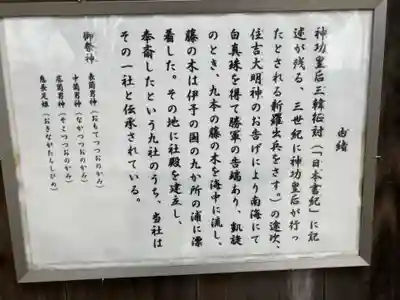 由緒
神功皇后三韓征討(「日本書紀」に記
述が残る、三世紀に神功皇后が行っ
たとされる新羅出兵をさす。)の途次、
住吉大明神のお告げにより南海にて
白真珠を得て勝軍の吉端あり、凱旋
のとき、九本の藤の木を海中に流し、
藤の木は伊予の国の九か所の浦に漂
着した。その地に社殿を建立し、
奉斎したという九社のうち、当社は
その一社と伝承されている。
御祭神
表筒男神(おもてつつおのかみ)
中筒男神(なかつつおのかみ)
底筒男神(そこつつおのかみ)
息長足姫(おきながたらしひめ)